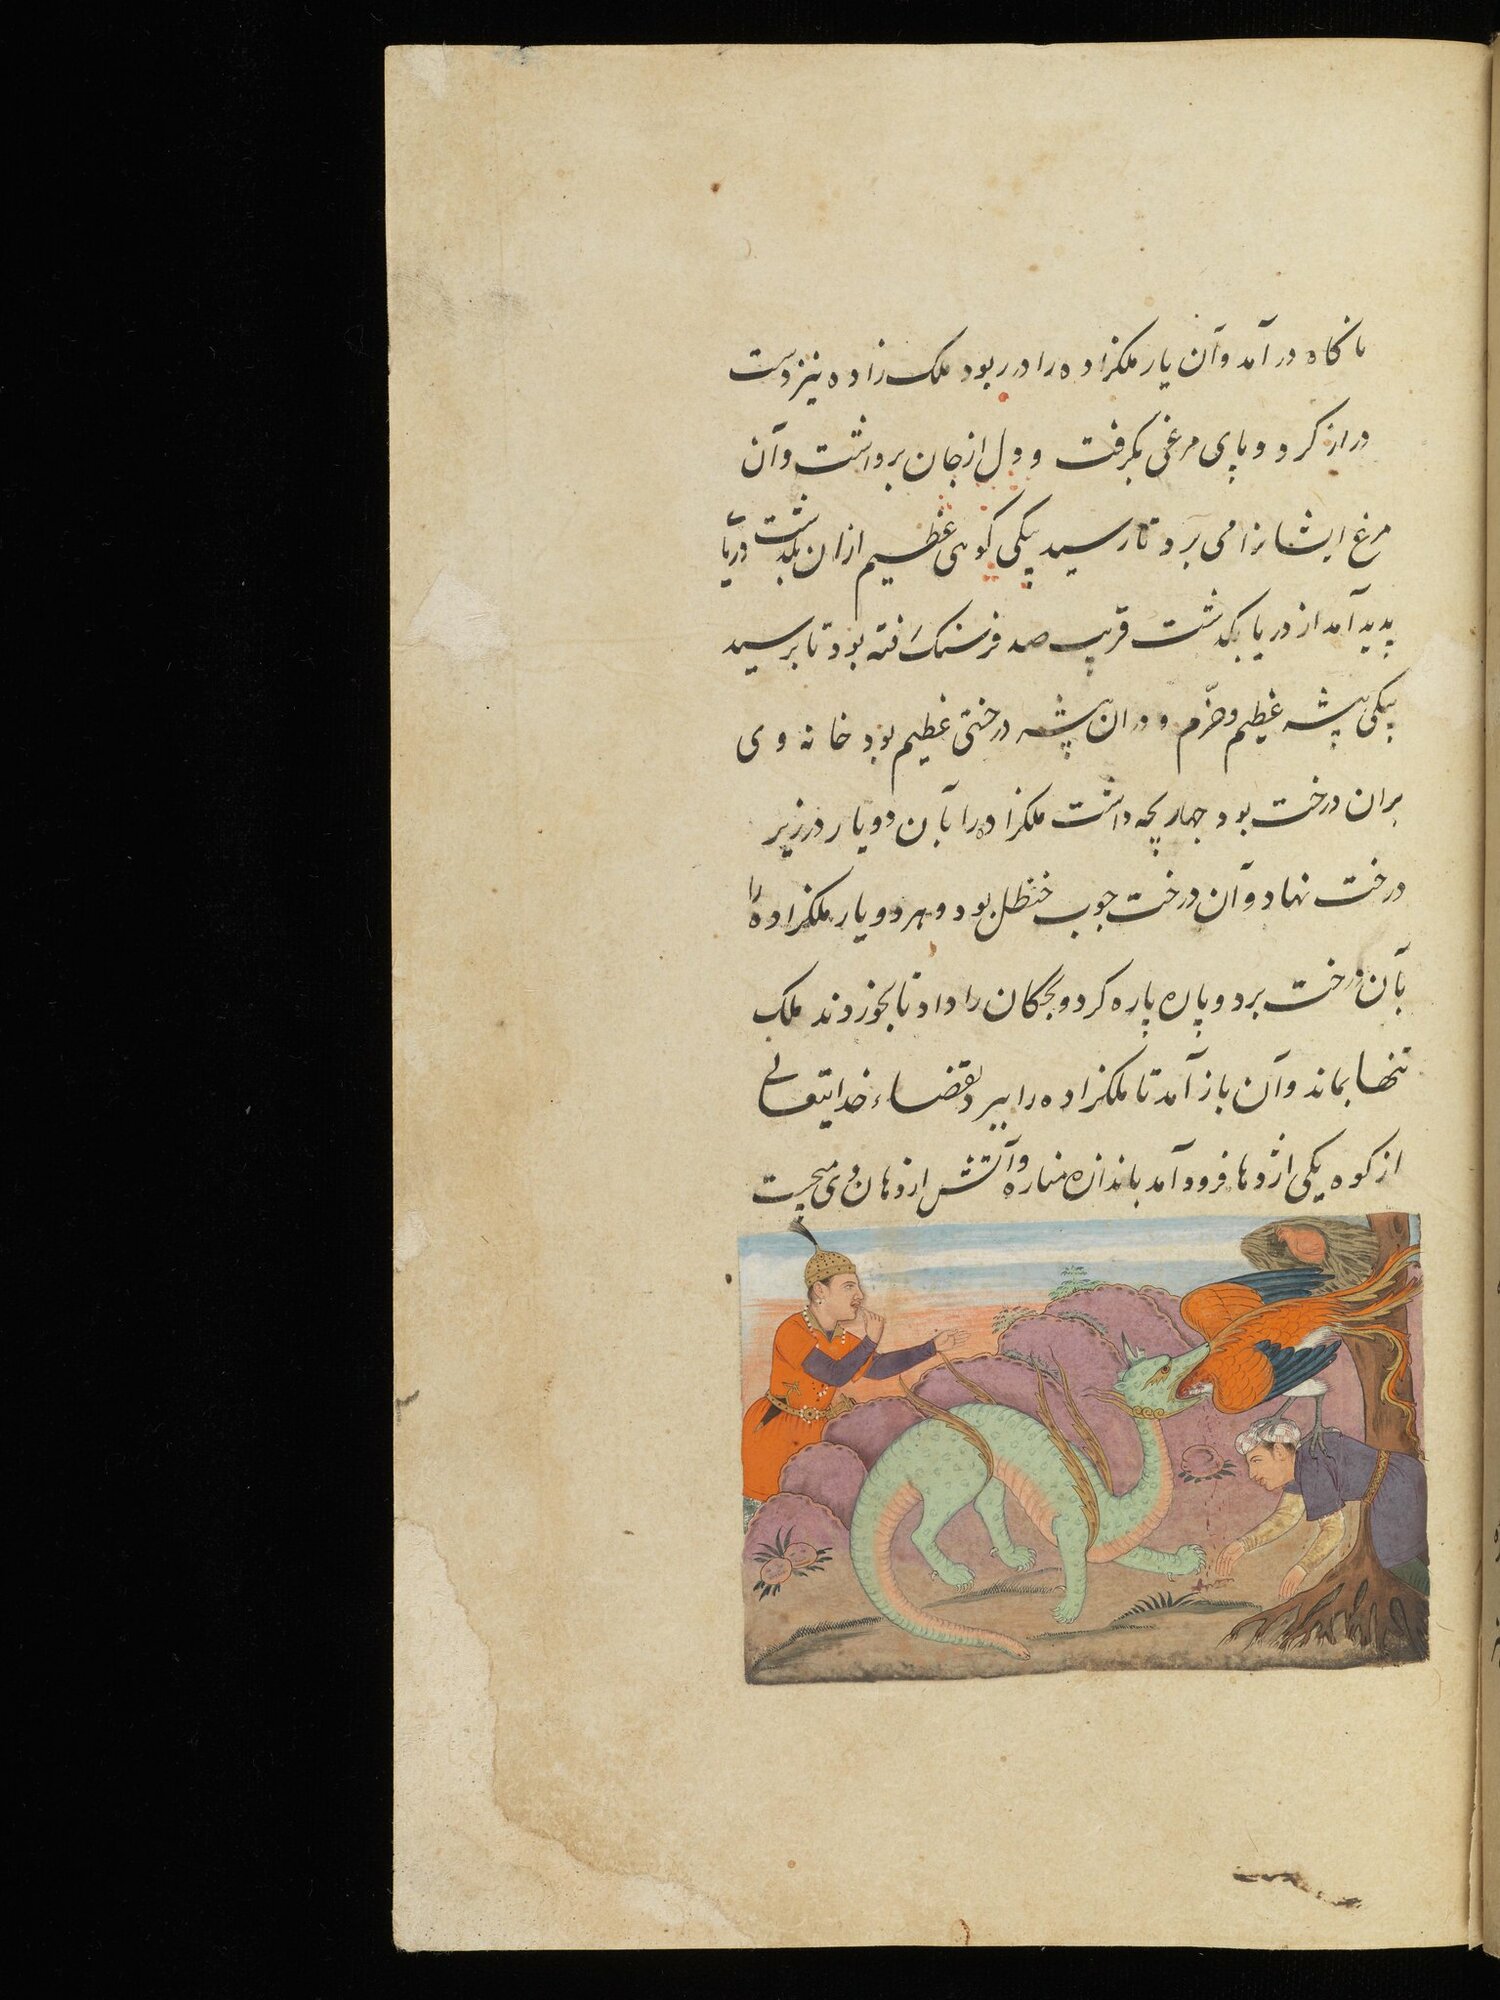 ناکاه در آمد وآن یار ملکزاده را در ربود ملک زاده نیز دست
دراز کرد و پای مرغی بکرفت و دل از جان برداشت وآن
مرغ ایشانرا می برد تا رسید بیکی کوهی عظیم ازان بکذشت دریا
پدید آمد از دریا بکذشت قریب صد فرسنک رفته بود تا برسید
بیکی بیشه عظیم وخرّم و دران بیشه درختی عظیم بود خانه وی
بران درخت بود چهار بچه داشت ملکزاده را بآن دو یار در زیر
درخت نهاد وآن درخت چوب حنظل بود و هر دو یار ملکزاده را
بآن درخت برد و پاره پاره کرد و بچکان را داد تا بخوردند ملک
تنها بماند وآن باز آمد تا ملکزاده را ببرد بقضاء خدایتعالی
از کوه یکی اژدها فرود آمد باندازه مناره وآتش از دهان وی میجست